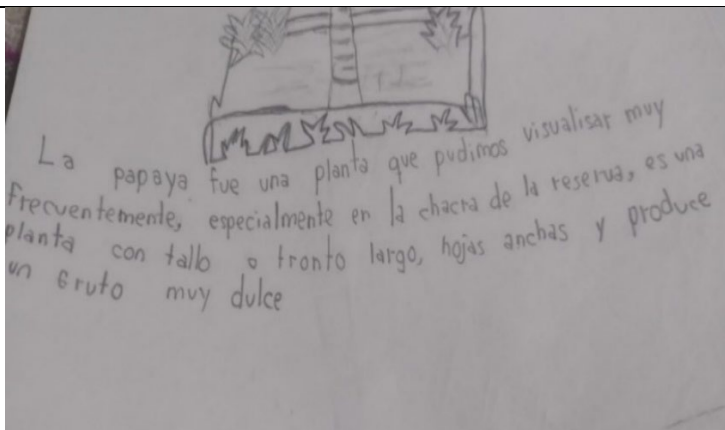 La papaya fue una planta que pudimos visualisar muy
frecuentemente, especialmente en la chacra de la reserva, es una
planta con tallo o tronto largo, hojas anchas y produce
un fruto muy dulce